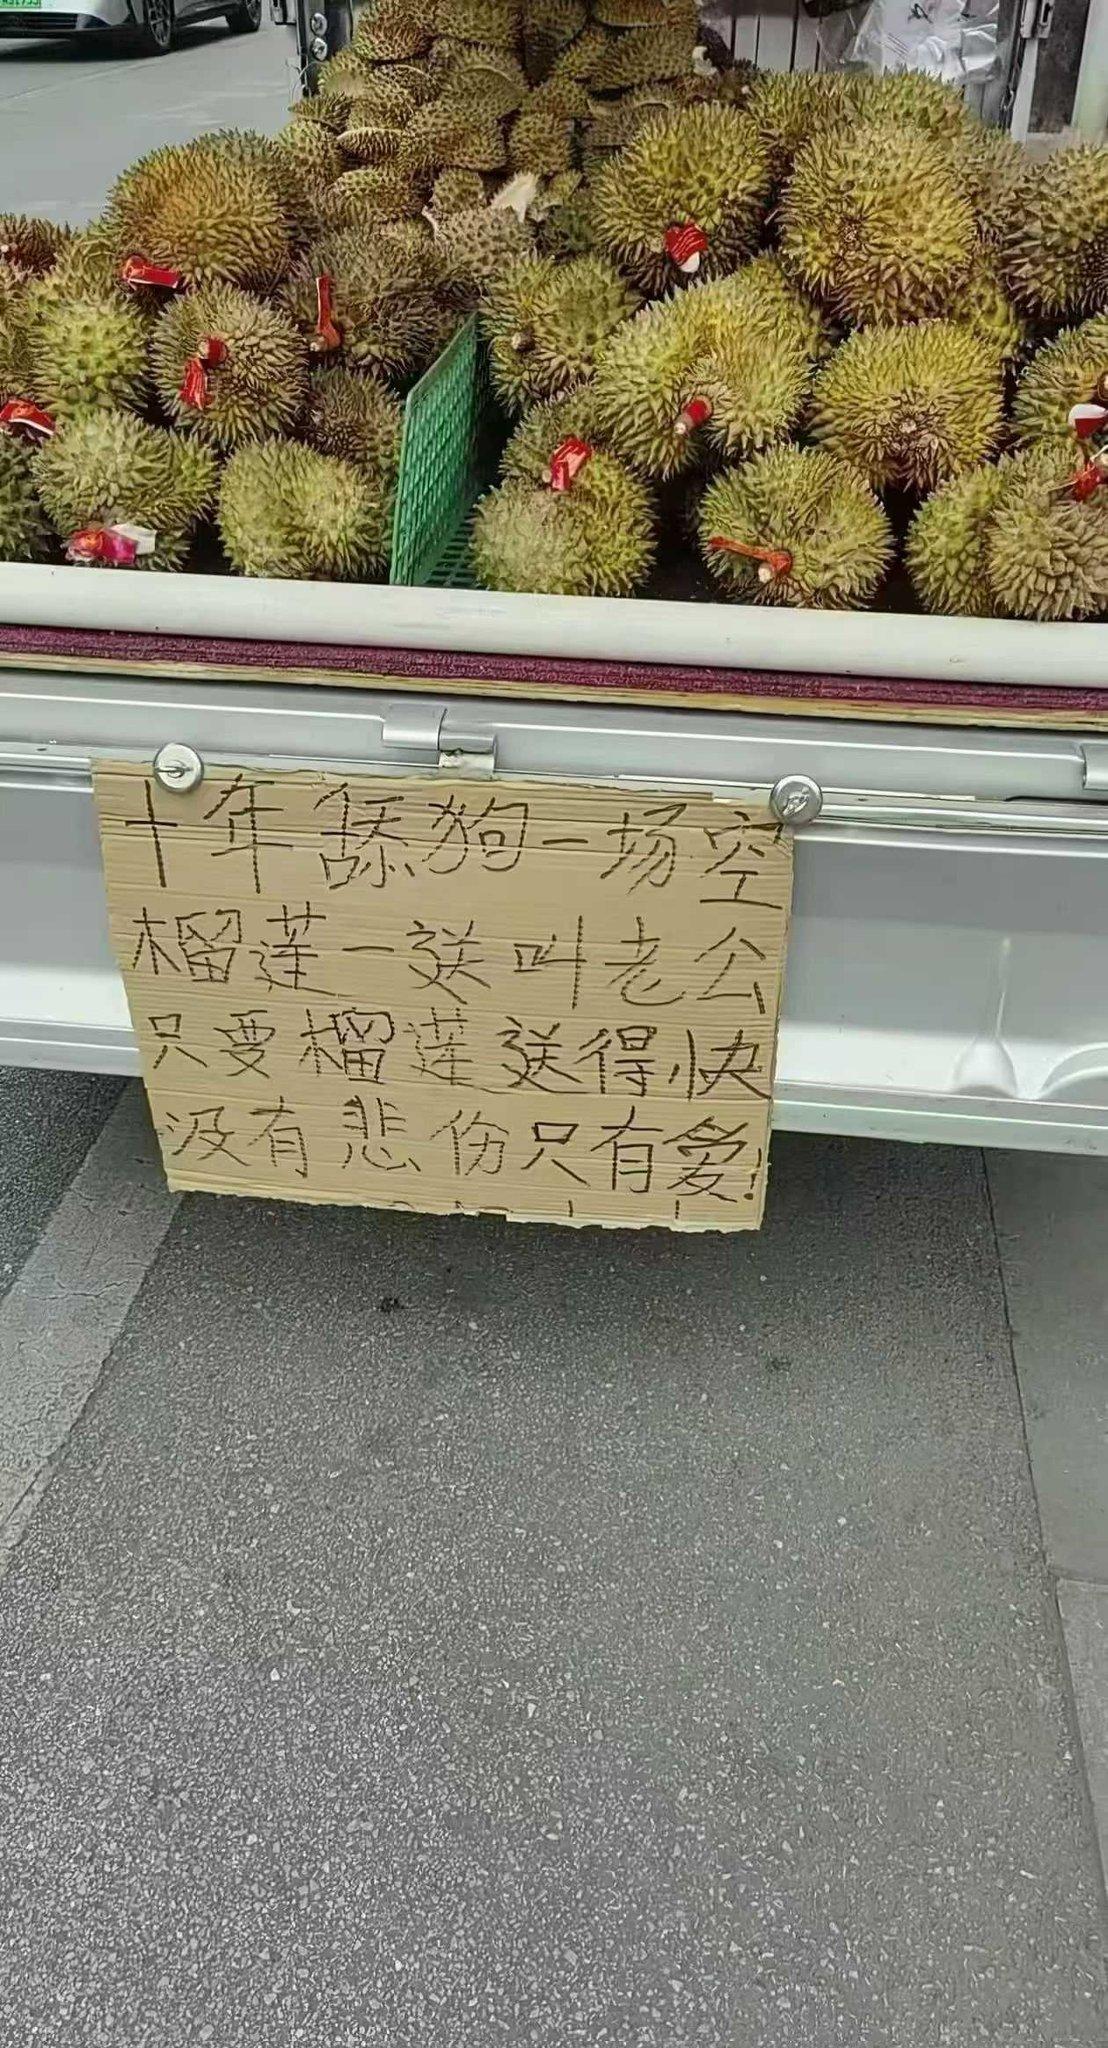 十年舔狗一场空
榴莲一送叫老公
只要榴莲送得快
没有悲伤只有爱!